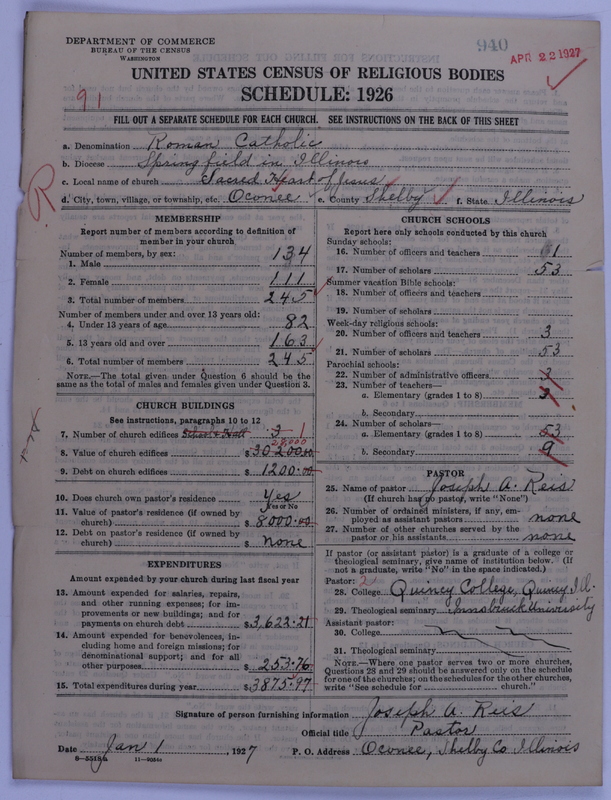 DEPARTMENT OF COMMERCE
BUREAU OF THE CENSUS
WASHINGTON
940
APR 22 1927
91
UNITED STATES CENSUS OF RELIGIOUS BODIES
SCHEDULE: 1926
FILL OUT A SEPARATE SCHEDULE FOR EACH CHURCH. SEE INSTRUCTIONS ON THE BACK OF THIS SHEET
a. Denomination Roman Catholic
b. Diocese Springfield in Illinois
c. Local name of church Sacred Heart of Jesus
d. City, town, village, or township, etc. Oconee e. County Shelby f. State Illinois
R
MEMBERSHIP
Report number of members according to definition of
member in your church
Number of members, by sex:
1. Male 134
2. Female 111
3. Total number of members 245
Number of members under and over 13 years old:
4. Under 13 years of age 82
5. 13 years old and over 163
6. Total number of members 245
NOTE.—The total given under Question 6 should be the
same as the total of males and females given under Question 3.
CHURCH BUILDINGS
See instructions, paragraphs 10 to 12
7. Number of church edifices School & Hall 3 1
28,000
8. Value of church edifices $30200.00
9. Debt on church edifices $1200.00
10. Does church own pastor's residence Yes
Yes or No
11. Value of pastor's residence (if owned by
church) $8000.00
12. Debt on pastor's residence (if owned by
church) $ none
EXPENDITURES
Amount expended by your church during last fiscal year
13. Amount expended for salaries, repairs,
and other running expenses; for im-
provements or new buildings; and for
payments on church debt $3,622.21
14. Amount expended for benevolences, in-
cluding home and foreign missions; for
denominational support; and for all
other purposes $253.76
15. Total expenditures during year $3875.97
CHURCH SCHOOLS
Report here only schools conducted by this church
Sunday schools:
16. Number of officers and teachers 1
17. Number of scholars 53
Summer vacation Bible schools:
18. Number of officers and teachers
19. Number of scholars
Week-day religious schools:
20. Number of officers and teachers 3
21. Number of scholars 53
Parochial schools:
22. Number of administrative officers 3
23. Number of teachers—
a. Elementary (grades 1 to 8) 3
b. Secondary
24. Number of scholars—
a. Elementary (grades 1 to 8) 53
b. Secondary 9
PASTOR
25. Name of pastor Joseph A. Reis
(If church has no pastor, write "None")
26. Number of ordained ministers, if any, em-
ployed as assistant pastors none
27. Number of other churches served by the
pastor or his assistants none
If pastor (or assistant pastor) is a graduate of a college or
theological seminary, give name of institution below. (If
not a graduate, write "No" in the space indicated.)
Pastor: 2
28. College Quincy College, Quincy Ill.
29. Theological seminary Innsbruck University
Assistant pastor:
30. College
31. Theological seminary
NOTE.—Where one pastor serves two or more churches,
Questions 28 and 29 should be answered only on the schedule
for one of the churches; on the schedules for the other churches,
write "See schedule for church."
Signature of person furnishing information Joseph A. Reis
Official title Pastor
Date Jan 1, 1927 P. O. Address Oconee, Shelby Co Illinois